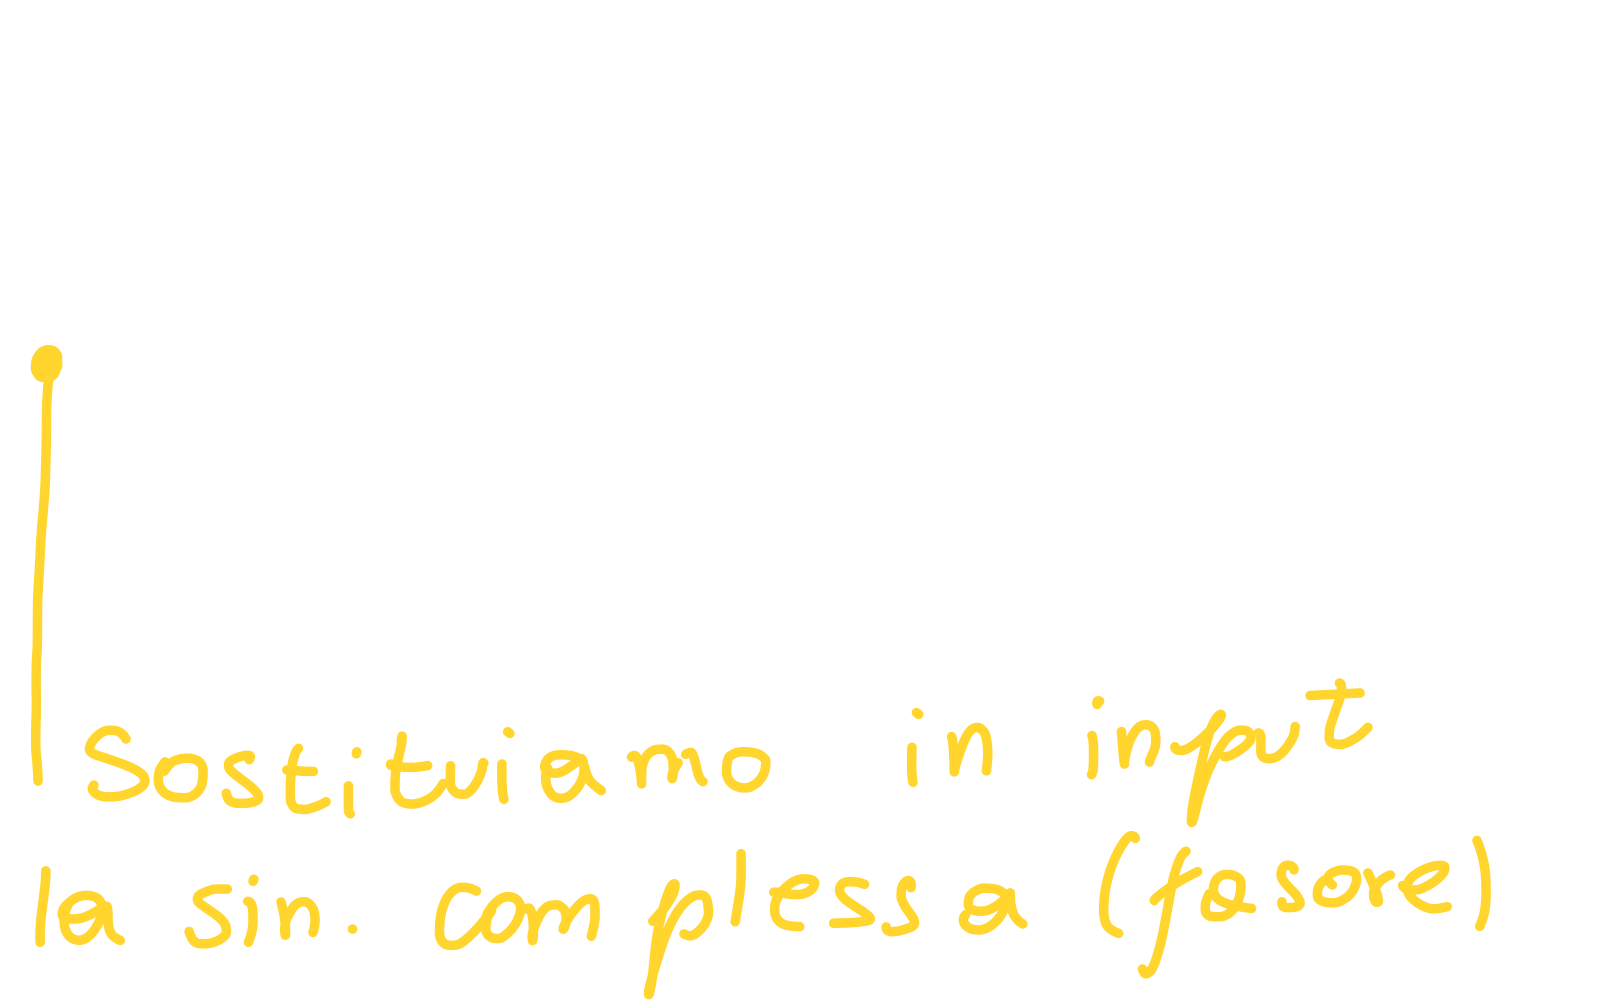 Sostituiamo in input
la sin. complessa (fasore)